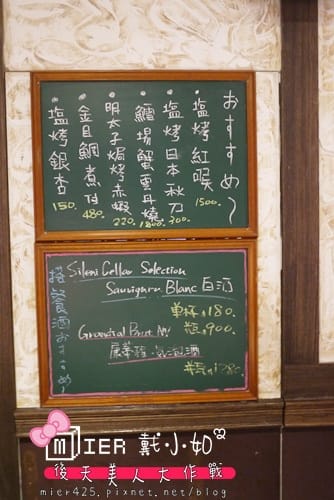 おすすめ～
塩烤紅喉 1500.
塩烤日本秋刀 300.
鱈場蟹雲丹燒 1800.
明太子焗烤赤蝦 220.
金目鯛煮付 480.
塩烤銀杏 150.
搭餐酒おすすめ～
Sileni Cellar Selection
Sauvignon Blanc 白酒
單杯$180.
瓶$900.
Grandial Brut NV
氣泡酒
MIER 戴小如
後天美人大作戰
mier425.pixnet.net/blog